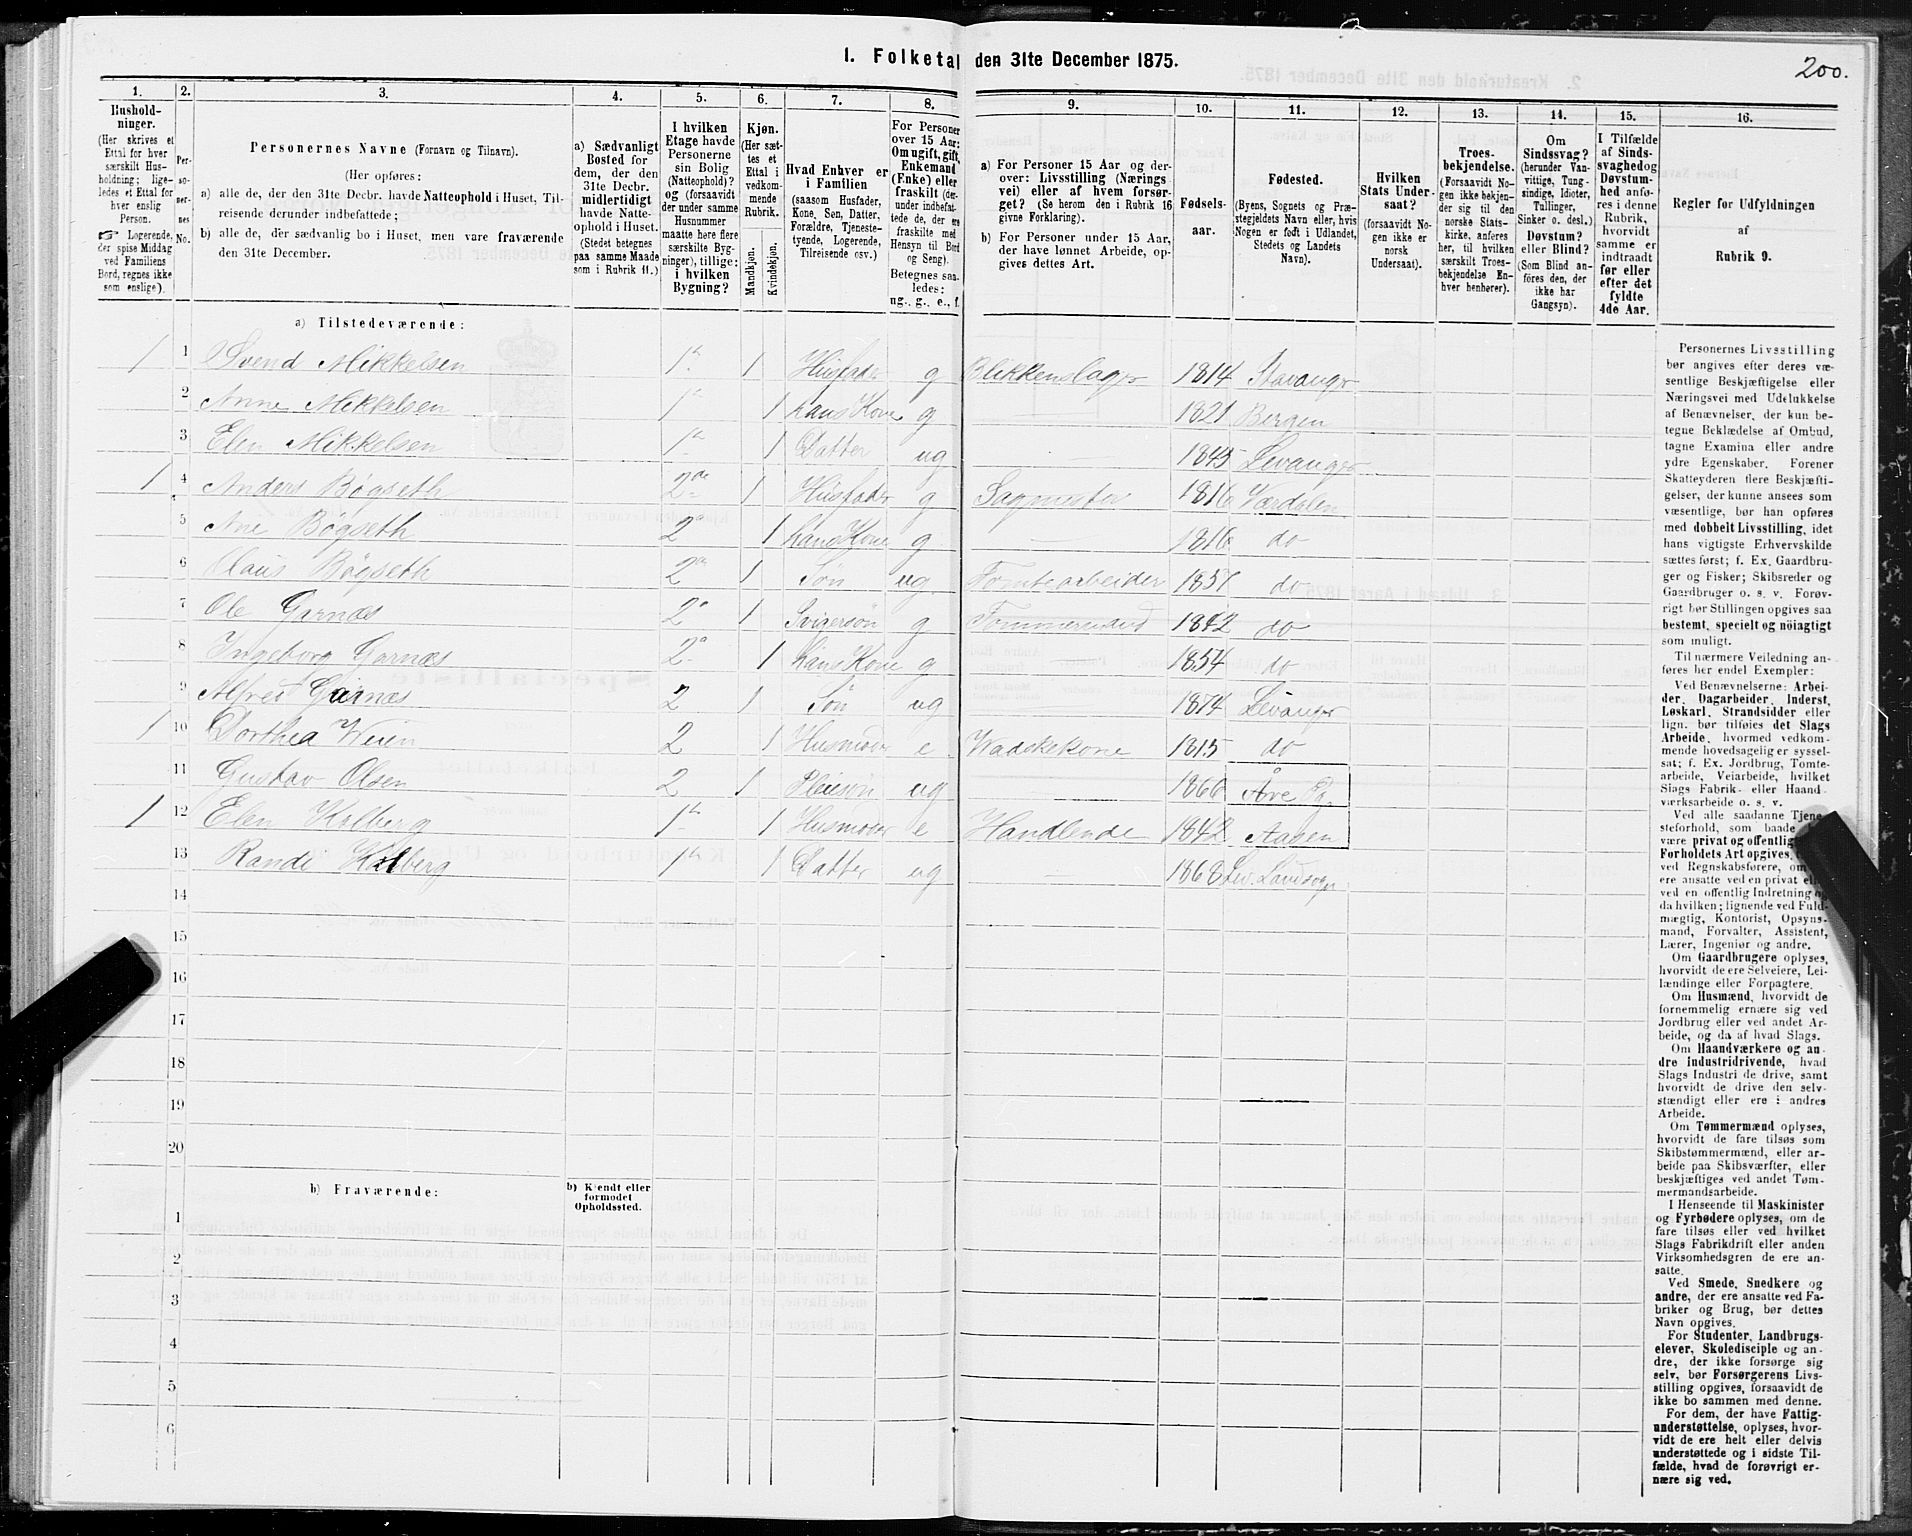 1. Folketal den 31te December 1875.
200.
1.
2.
3.
4.
5.
6.
7.
8.
9.
10.
11.
12.
13.
14.
15.
16.
Hushold-
ninger.
(Her skrives et
Ettal for hver
særskilt Hus-
holdning; lige-
ledes et Ettal for
hver enslig
Person.
☞ Logerende,
der spise Middag
ved Familiens
Bord, regnes ikke
som enslige).
Per-
so-
ner-
nes
No.
Personernes Navne (Fornavn og Tilnavn).
(Her opføres:
a) alle de, der den 31te Decbr. havde Natteophold i Huset, Til-
reisende derunder indbefattede;
b) alle de, der sædvanlig bo i Huset, men vare fraværende
den 31te December.
a) Sædvanligt
Bosted for
dem, der den
31te Decbr.
midlertidigt
havde Natte-
ophold i Huset.
(Stedet betegnes
paa samme Maade
som i Rubrik 11.)
I hvilken
Etage havde
Personerne
sin Bolig
(Natteophold)?
og (forsaavidt
der under samme
Husnummer
maatte høre flere
særskilte Byg-
ninger), tillige:
i hvilken
Bygning?
Kjøn.
(Her sæt-
tes et
Ettal i
vedkom-
mende
Rubrik.
Mandkjøn.
Kvindekjøn.
Hvad Enhver er
i Familien
(saasom Husfader,
Kone, Søn, Datter,
Forældre, Tjeneste-
tyende, Logerende,
Tilreisende osv.)
For Personer
over 15 Aar:
Om ugift, gift,
Enkemand
(Enke) eller
fraskilt (der-
under indbefat-
tede de, der ere
fraskilte med
Hensyn til Bord
og Seng).
Betegnes saa-
ledes:
ug., g., e., f.
a) For Personer 15 Aar og der-
over: Livsstilling (Nærings-
vei) eller af hvem forsør-
get? (Se herom den i Rubrik 16
givne Forklaring).
b) For Personer under 15 Aar,
der have lønnet Arbeide, op-
gives dettes Art.
Fødsels-
aar.
Fødested.
(Byens, Sognets og Præ-
stegjeldets Navn eller, hvis
Nogen er født i Udlandet,
Stedets og Landets
Navn).
Hvilken
Stats Under-
saat?
(forsaavidt No-
gen ikke er
norsk
Undersaat).
Troes-
bekjendelse.
(Forsaavidt No-
gen ikke bekjen-
der sig til den
norske Stats-
kirke, anføres
her, til hvilken
særskilt Troes-
bekjendelse En-
hver henhører).
Om
Sindssvag?
(herunder Van-
vittige, Tung-
sindige, Idioter,
Tullinger,
Sinker o. desl.)
Døvstum?
eller Blind?
(Som Blind an-
føres den, der
ikke har
Gangsyn).
I Tilfælde
af Sinds-
svaghed og
Døvstum-
hed anfø-
res i denne
Rubrik,
hvorvidt
samme er
indtraadt
før eller
efter det
fyldte
4de Aar.
Regler for Udfyldningen
af
Rubrik 9.
a) Tilstedeværende:
1 1 Svend Mikkelsen 1ste 1 Husfader g Blikkenslager 1814 Stavanger
2 Anne Mikkelsen 1 hans Kone g 1821 Bergen
3 Elen Mikkelsen 1 Datter ug 1845 Levanger
1 4 Anders Bøgseth 1 Husfader g Sagmester 1816 Værdalen
5 Ane Bøgseth 2 1 hans Kone g 1816 do
6 Claus Bøgseth 1 Søn ug Tomtearbeider 1857 do
7 Ole Garnæs 2 1 Svigersøn g Tømmermand 1842 do
8 Ingeborg Garnæs 2 1 hans Kone g 1854 do
9 Alfred Garnæs 2 1 Søn ug 1874 Levanger
1 10 Dorthea Weien 2 1 Husmoder e Vadskekone 1815 do
11 Gustav Olsen 2 1 Pleiesøn ug 1866 Åre Pg.
1 12 Elen Kolberg 1 Husmoder e Handlende 1842 Aasen
13 Randi Kolberg 1 Datter ug 1868 Lev. Landsogn
14
15
16
17
18
19
20
b) Fraværende:
b) Kjendt eller
formodet
Opholdssted.
1
2
3
4
5
6
Personernes Livsstilling
bør angives efter deres væ-
sentlige Beskjæftigelse eller
Næringsvei med Udelukkelse
af Benævnelser, der kun be-
tegne Beklædelse af Ombud,
tagne Examina eller andre
ydre Egenskaber. Forener
Skatteyderen flere Beskjæfti-
gelser, der kunne ansees som
væsentlige, bør han opføres
med dobbelt Livsstilling, idet
hans vigtigste Erhvervskilde
sættes først; f. Ex. Gaardbru-
ger og Fisker; Skibsreder og
Gaardbruger o. s. v. Forøv-
rigt bør Stillingen opgives saa
bestemt, specielt og nøiagtigt
som muligt.
Til nærmere Veiledning an-
føres her endel Exempler:
Ved Benævnelserne: Arbei-
der, Dagarbeider, Inderst,
Løskarl, Strandsidder eller
lign. bør tilføies det Slags
Arbeide, hvormed vedkom-
mende hovedsagelig er syssel-
sat; f. Ex. Jordbrug, Tomte-
arbeide, Veiarbeide, hvilket
Slags Fabrik- eller Haand-
værksarbeide o. s. v.
Ved alle saadanne Tjene
steforhold, som baade
være privat og offentlig
Forholdets Art opgives,
ved Regnskabsførere, om
ere ansatte ved en privat
ved en offentlig Indretning
da hvilken; lignende ved Fuld-
mægtig, Kontorist, Opsyns-
mand, Forvalter, Assistent,
Lærer, Ingeniør og andre.
Om Gaardbrugere oplyses,
hvorvidt de ere Selveiere, Lei-
lændinge eller Forpagtere.
Om Husmænd, hvorvidt de
fornemmelig ernære sig ved
Jordbrug eller ved andet Ar-
beide, og da af hvad Slags.
Om Haandværkere og an-
dre industridrivende, hvad
Slags Industri de drive, samt
hvorvidt de drive den selv-
stændigt eller ere i andres
Arbeide.
Om Tømmermænd oplyses,
hvorvidt de fare tilsøs som
Skibstømmermænd, eller ar-
beide paa Skibsværfter, eller
beskjæftiges ved andet Tøm-
mermandsarbeide.
I Henseende til Maskinister
og Fyrbødere oplyses, om de
fare tilsøs eller ved hvilket
Slags Fabrikdrift eller anden
Virksomhedsgren de ere an-
satte.
Ved Smede, Snedkere og
andre, der ere ansatte ved Fa-
briker og Brug, bør dettes
Navn opgives.
For Studenter, Landbrugs-
elever, Skoledisciple og an-
dre, der ikke forsørge sig
selv, bør Forsørgerens Livs-
stilling opgives, forsaavidt de
ikke bo sammen med denne.
For dem, der have Fattig-
understøttelse, oplyses, hvor-
vidt de ere helt eller delvis
understøttede og i sidste Til-
fælde, hvad de forøvrigt er-
nære sig ved.